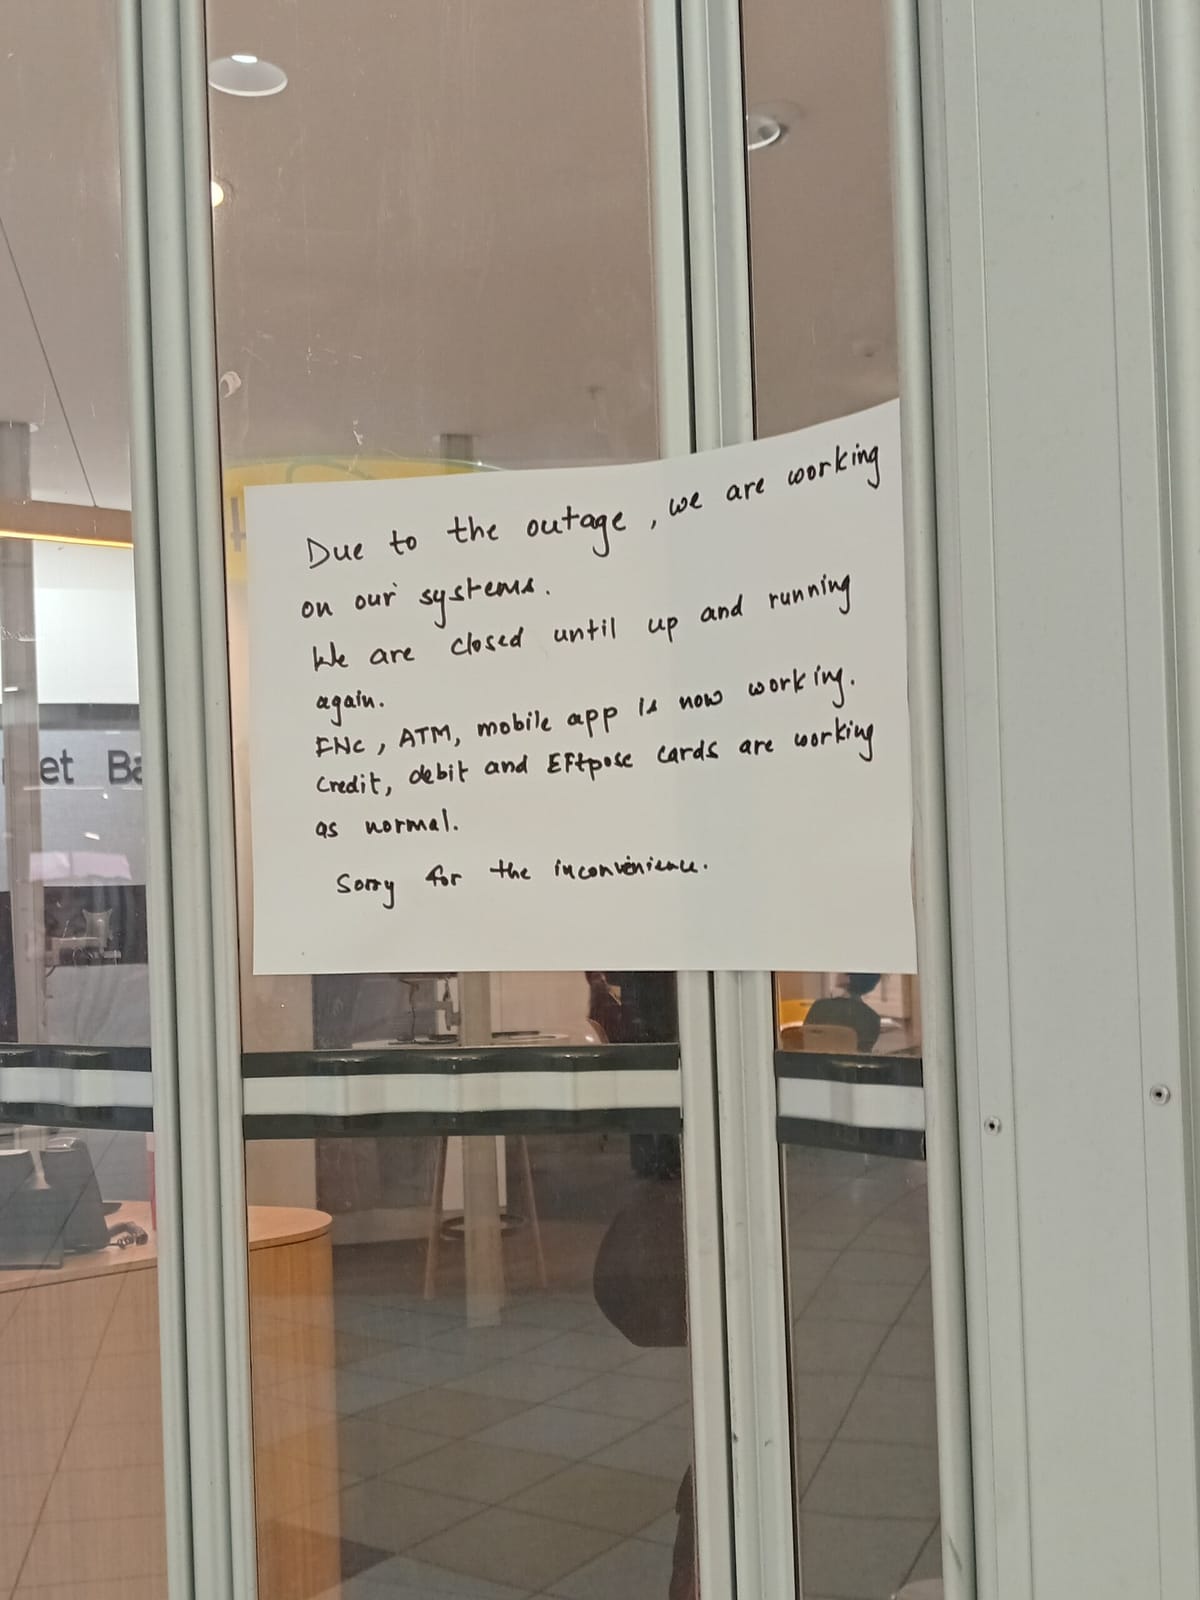 Due to the outage, we are working
on our systems.
We are closed until up and running
again.
FNC, ATM, mobile app is now working.
Credit, debit and EFtpose cards are working
as normal.
Sorry for the inconvenience.
et Ba